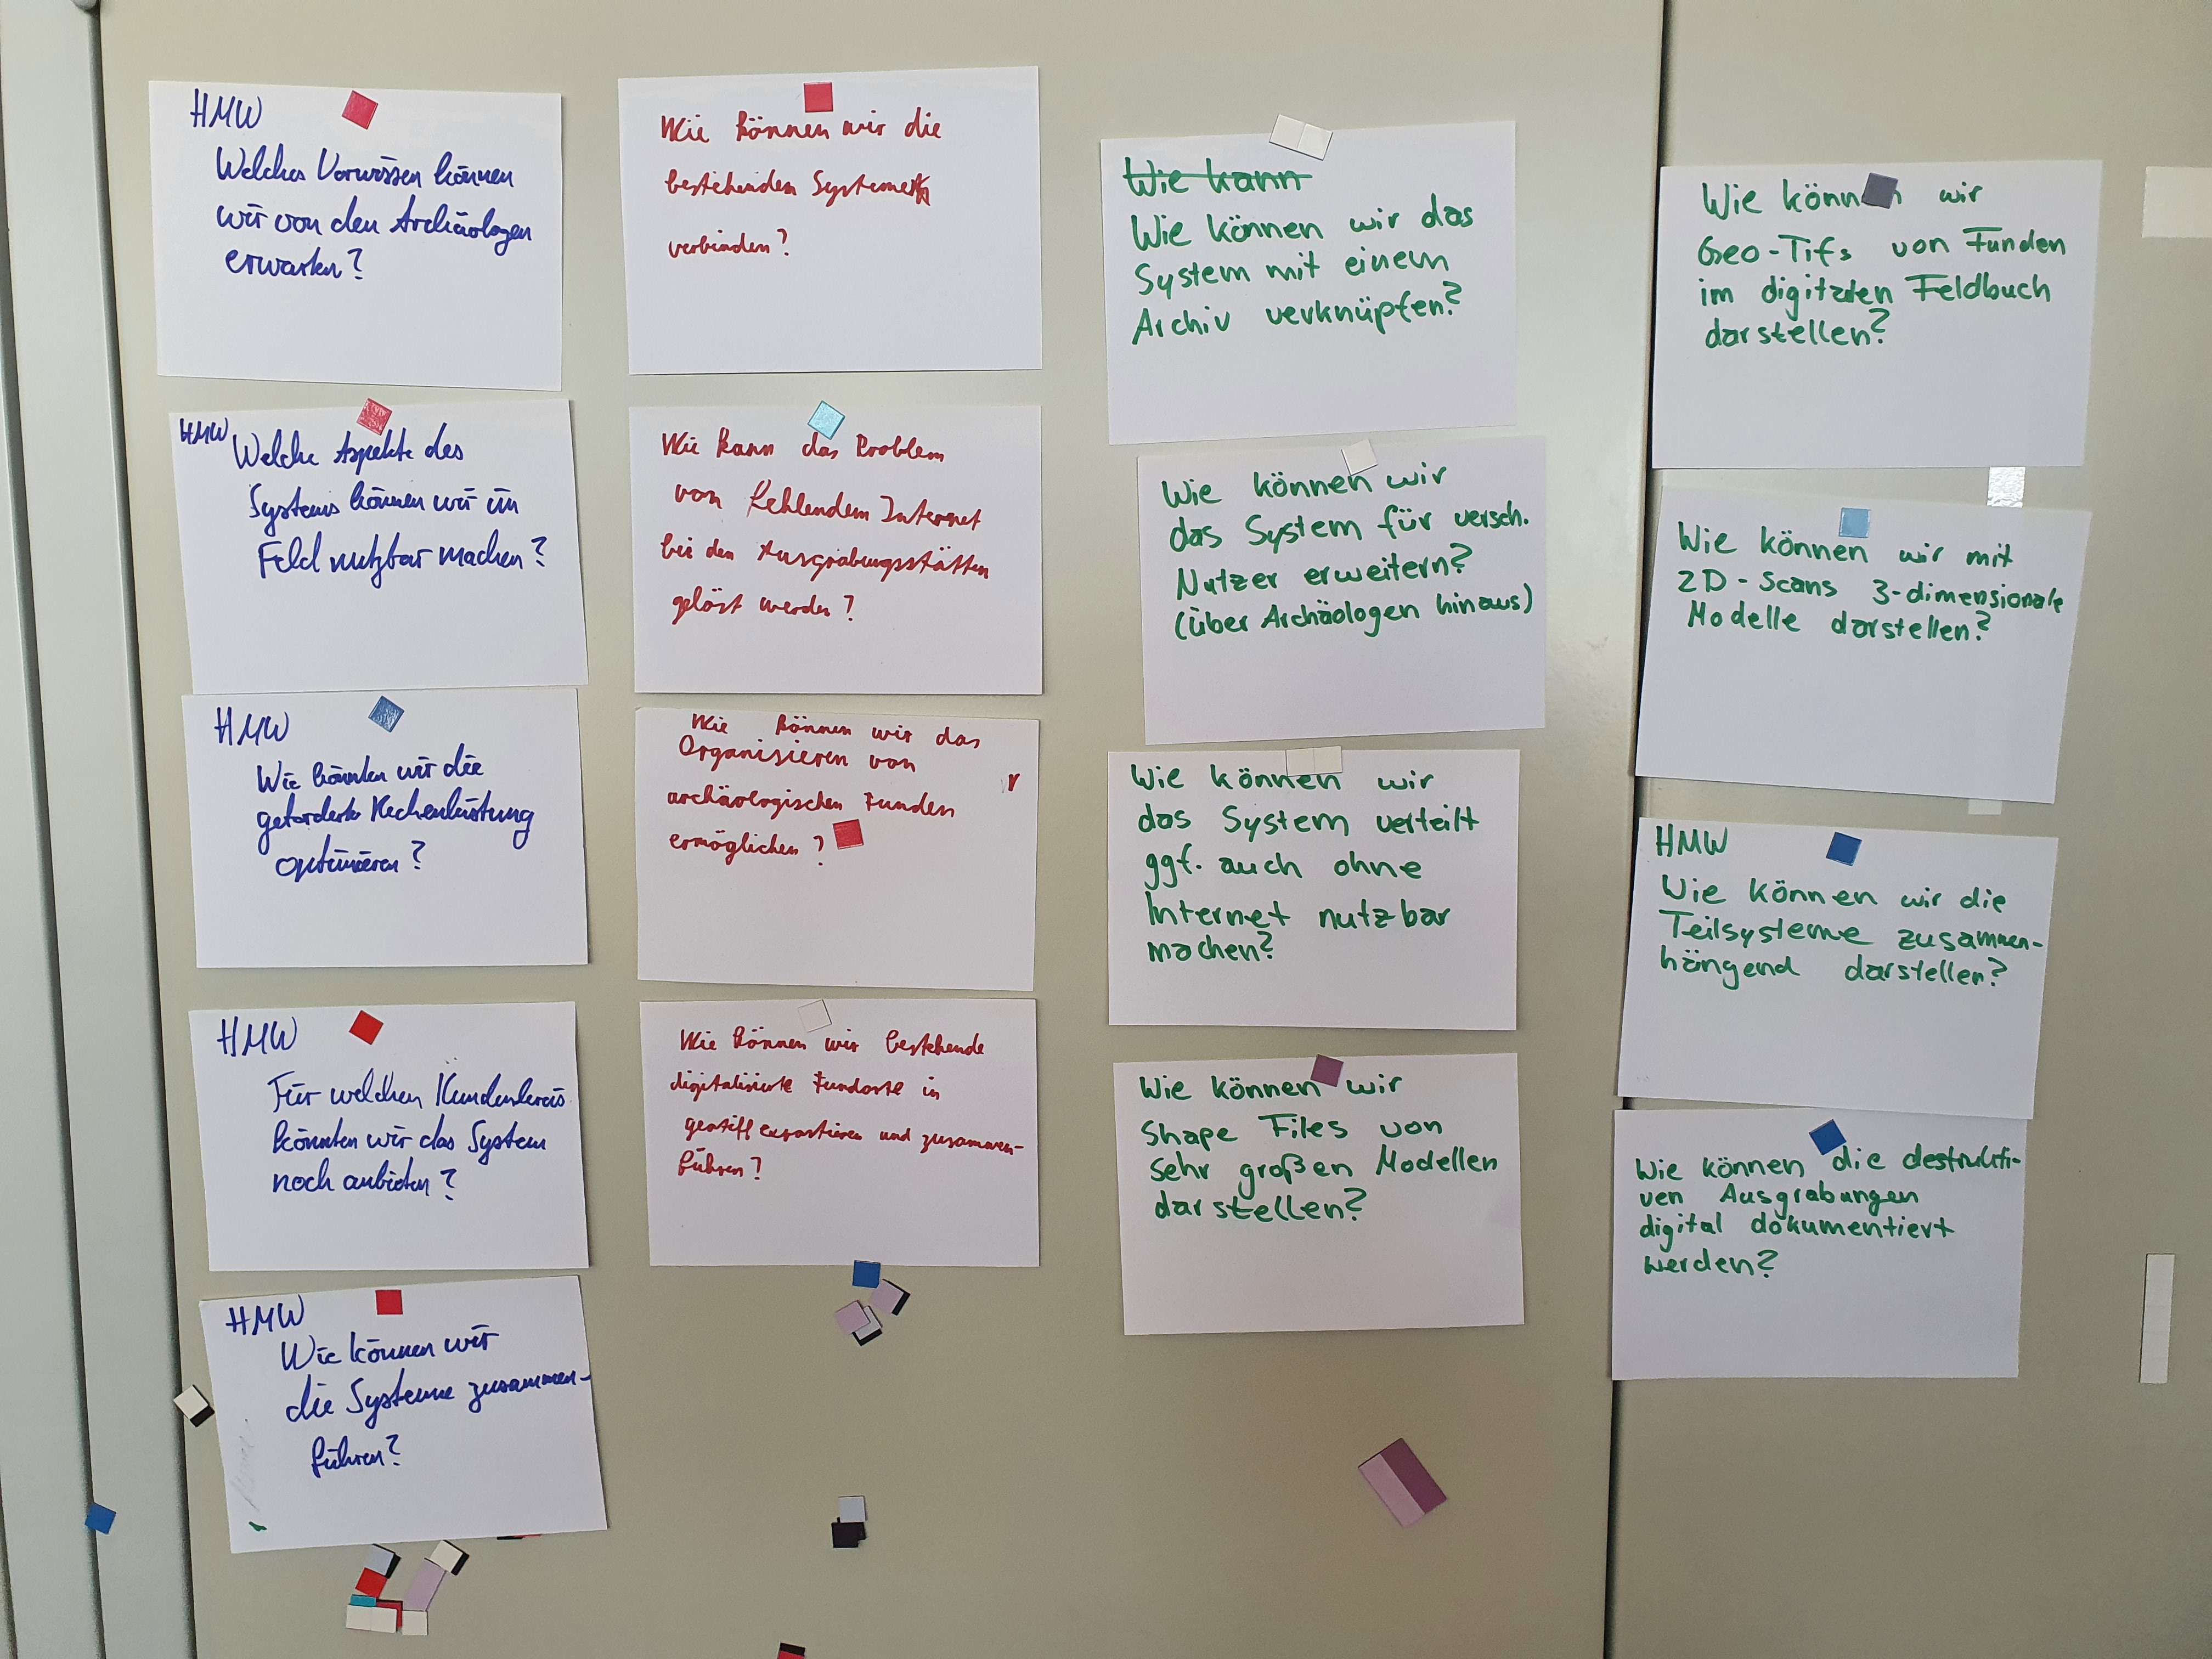 HMW
Welches Vorwissen können
wir von den Archäologen
erwarten?
HMW
Welche Aspekte des
Systems können wir im
Feld nutzbar machen?
HMW
Wie könnten wir die
geforderte Rechenleistung
optimieren?
HMW
Für welchen Kundenkreis
könnten wir das System
noch anbieten?
HMW
Wie können wir
die Systeme zusammen-
führen?
Wie können wir die
bestehenden Systeme
verbinden?
Wie kann das Problem
von fehlendem Internet
bei den Ausgrabungsstätten
gelöst werden?
Wie können wir das
Organisieren von
archäologischen Funden
ermöglichen?
Wie können wir bestehende
digitalisierte Fundorte in
geotiff exportieren und zusammen-
führen?
Wie kann
Wie können wir das
System mit einem
Archiv verknüpfen?
Wie können wir
das System für versch.
Nutzer erweitern?
(über Archäologen hinaus)
Wie können wir
das System verteilt
ggf. auch ohne
Internet nutzbar
machen?
Wie können wir
Shape Files von
sehr großen Modellen
darstellen?
Wie können wir
Geo-Tifs von Funden
im digitalen Feldbuch
darstellen?
Wie können wir mit
2D-Scans 3-dimensionale
Modelle darstellen?
HMW
Wie können wir die
Teilsysteme zusammen-
hängend darstellen?
Wie können die destrukti-
ven Ausgrabungen
digital dokumentiert
werden?